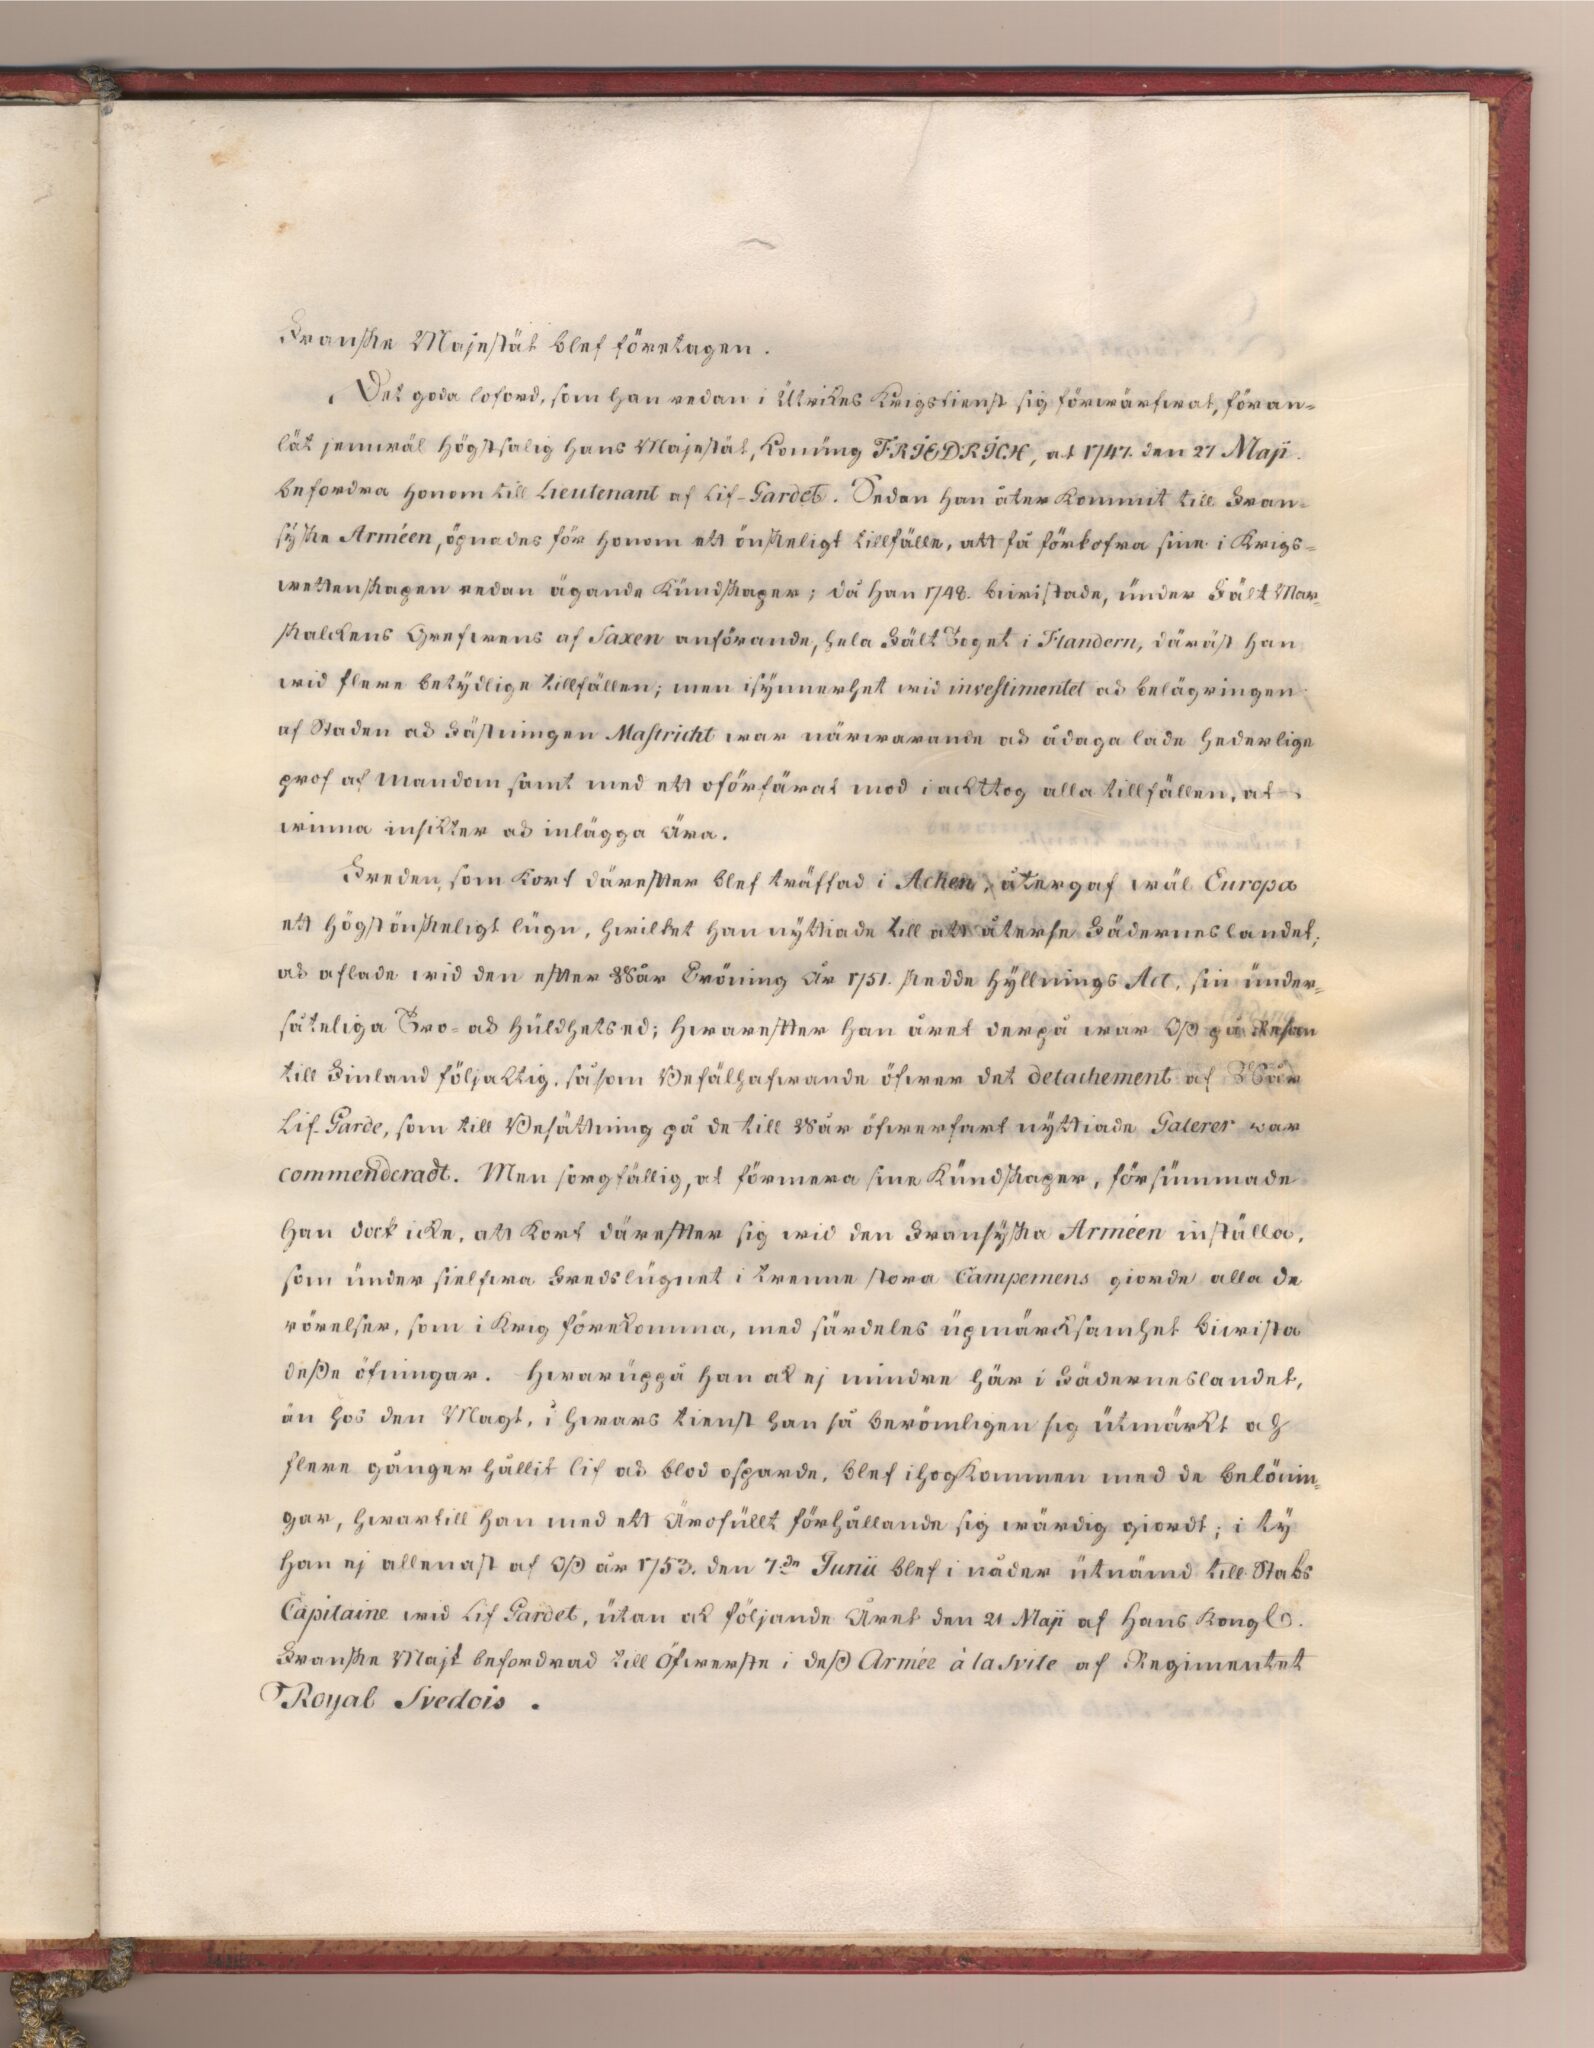 Franske Majestät blef företagen.
Det goda loford, som han redan i Utrikes Krigstienst sig förwärfwat, föran-
lät jemwäl Högstsalig Hans Majestät, Konung FRIEDRICH, at 1747. den 27 Maji
befordra honom till Lieutenant af Lif-Gardet. Sedan han åter kommit till Fran-
syske Arméen, öpnades för honom ett önskeligt tillfälle, att få förkofra sine i Krigs-
wettenskapen redan ägande Kundskaper; då han 1748. biwistade, under Fält Mar-
skalckens Grefwens af Saxen anförande, hela Fält Toget i Flandern, däräst han
wid flere betydlige tillfällen; men isynnerhet wid investimentet och belägringen
af Staden och Fästningen Mastricht war närwarande och ådaga lade hederlige
prof af Mandom samt med ett oförfärat mod i ackttog alla tillfällen, at
winna insikter och inlägga Ära.
Freden, som kort därefter blef träffad i Achen, återgaf wäl Europa
ett högst önskeligt lugn, hwilket han nyttiade till att återse Fäderneslandet;
och aflade wid den efter Wår Cröning År 1751. skedde Hyllnings Act, sin under-
såteliga Tro- och Huldhetsed; hwarefter han året derpå war Oss på Resan
till Finland följaktig, såsom Befälhafwande öfwer det detachement af Wår
Lif-Garde, som till Besättning på de till Wår öfwerfart nyttiade Galerer war
commenderadt. Men sorgfällig, at förmera sine Kundskaper, försummade
han dock icke, att kort därefter sig wid den Fransyska Arméen inställa,
som under sielfwa Fredslugnet i trenne stora Campemens giorde alla de
rörelser, som i Krig förekomma, med särdeles upmärksamhet biwista
desse öfningar. Hwaruppå han ock ej mindre här i Fäderneslandet,
än hos den Magt, i hwars tienst han så berömligen sig utmärkt och
flere gånger hållit lif och blod osparde, blef ihogkommen med de belönin-
gar, hwartill han med ett Ärofullt förhållande sig wärdig giordt; i ty
han ej allenast af Oss år 1753. den 7de Junii blef i nåder utnämd till Stabs
Capitaine wid Lif Gardet, utan ock följande Året den 21 Maji af Hans Kongl.
Franske Majt befordrad till Öfwerste i dess Armée à la Svite af Regimentet
Royal Svedois.